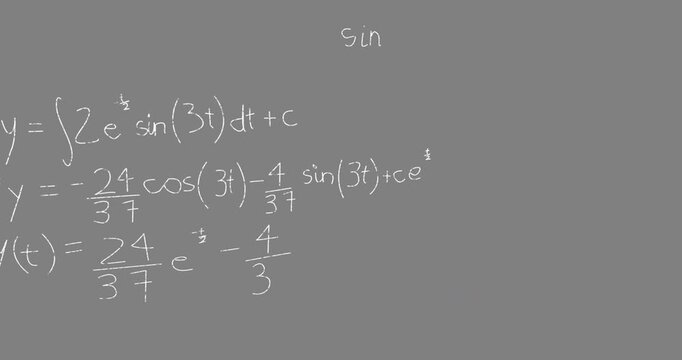 sin
y = ∫2e^-t/2 sin(3t)dt+c
y = -24/37 cos(3t)-4/37 sin(3t)+ce^t/2
y(t) = 24/37 e^-t/2 - 4/3